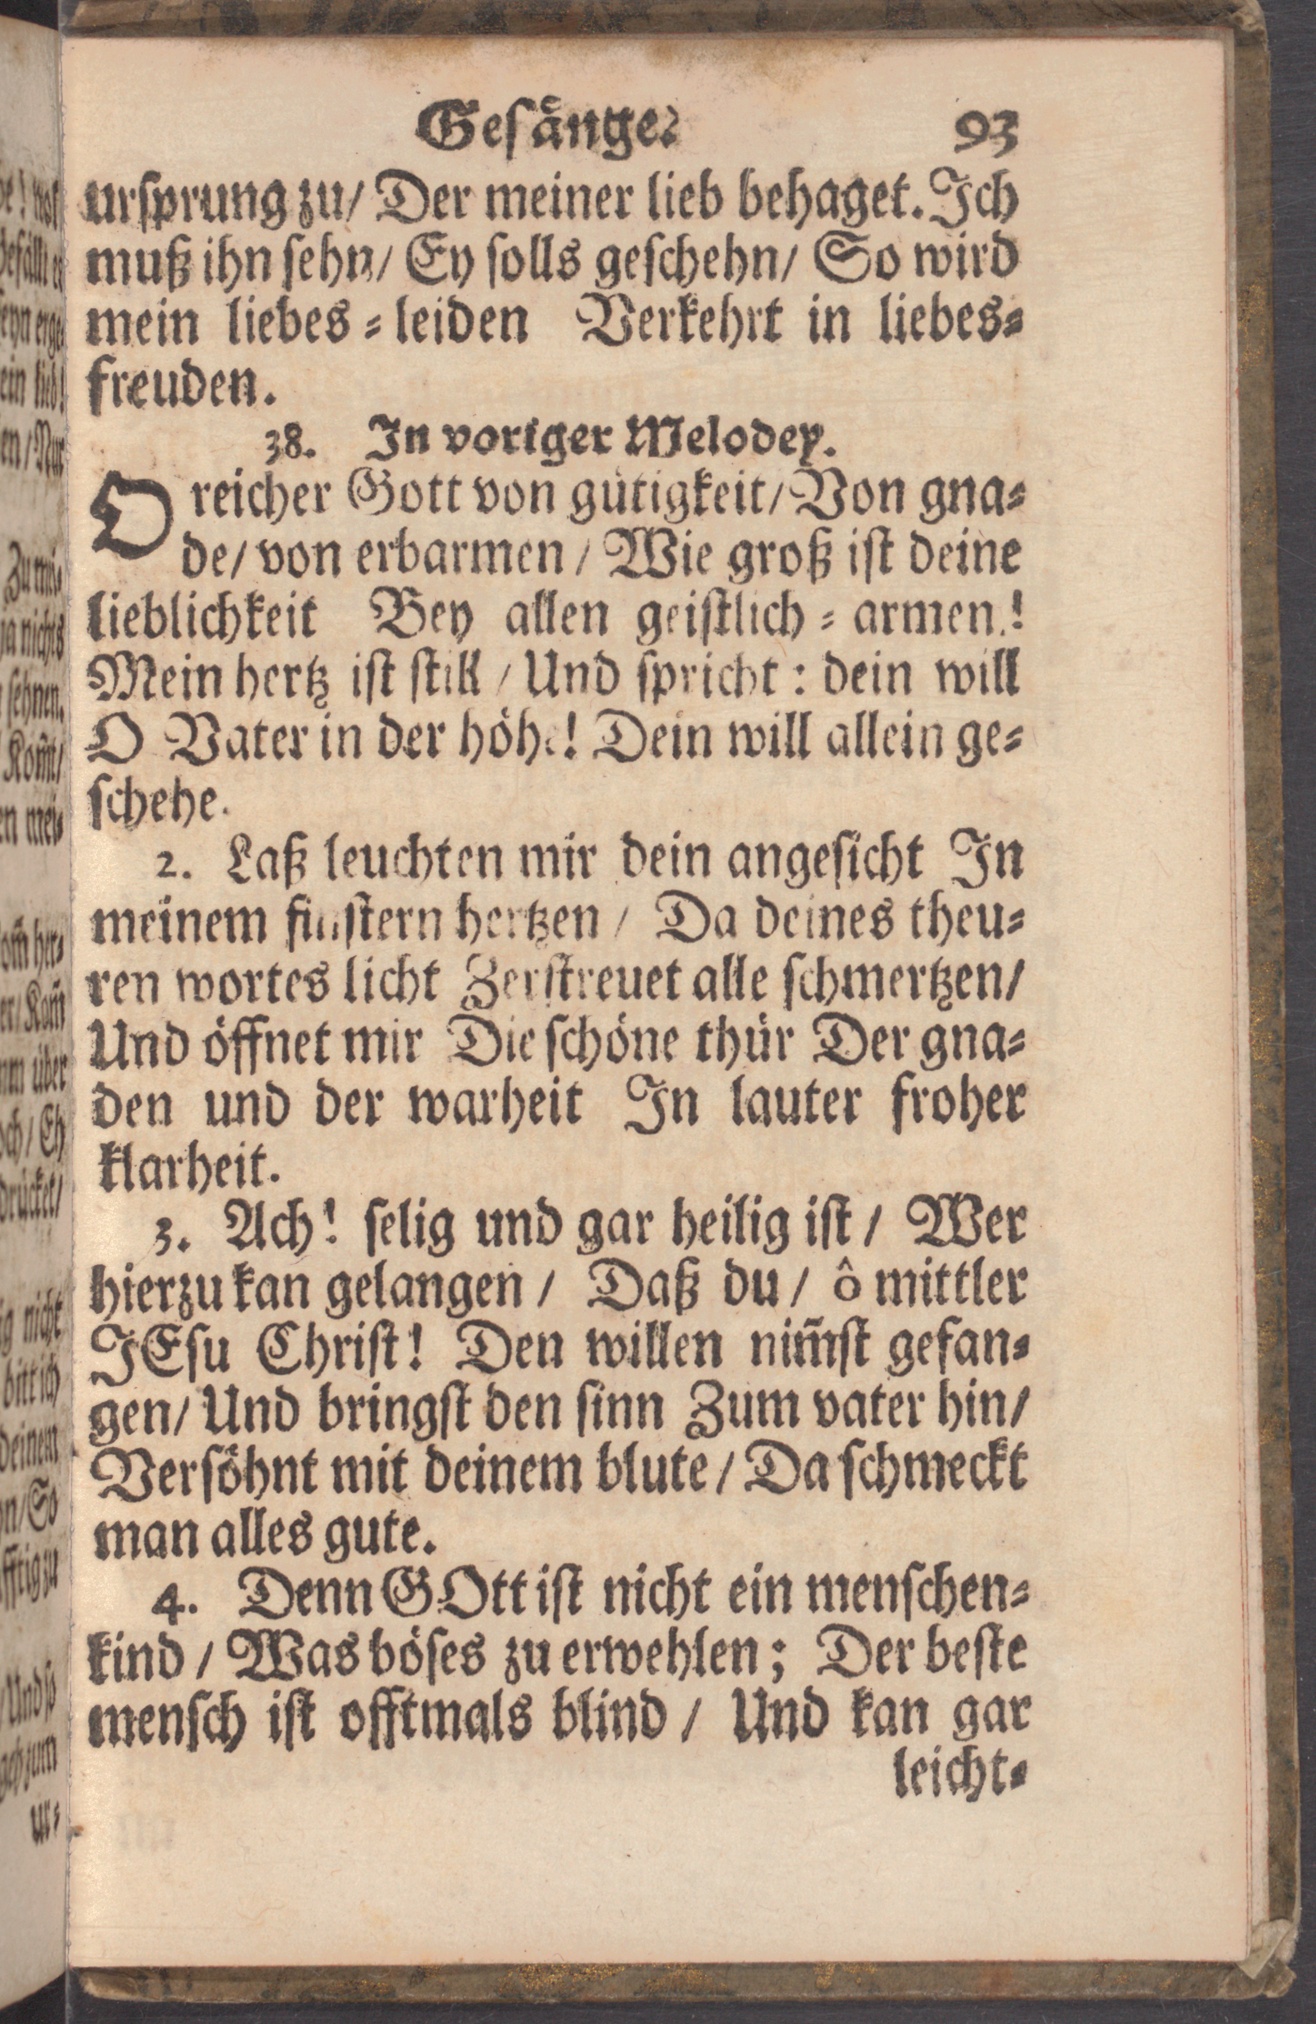 Gesänge. 93
ursprung zu/ Der meiner lieb behaget. Ich
muß ihn sehn/ Ey solls geschehn/ So wird
mein liebes-leiden Verkehrt in liebes-
freuden.
38. In voriger Melodey.
O reicher Gott von gütigkeit/ Von gna-
de/ von erbarmen/ Wie groß ist deine
lieblichkeit Bey allen geistlich-armen!
Mein hertz ist still/ Und spricht: dein will
O Vater in der höhe! Dein will allein ge-
schehe.
2. Laß leuchten mir dein angesicht In
meinem finstern hertzen/ Da deines theu-
ren wortes licht Zerstreuet alle schmertzen/
Und öffnet mir Die schöne thür Der gna-
den und der warheit In lauter froher
klarheit.
3. Ach! selig und gar heilig ist/ Wer
hierzu kan gelangen/ Daß du/ ô mittler
JEsu Christ! Den willen nim̃st gefan-
gen/ Und bringst den sinn Zum vater hin/
Versöhnt mit deinem blute/ Da schmeckt
man alles gute.
4. Denn GOtt ist nicht ein menschen-
kind/ Was böses zu erwehlen; Der beste
mensch ist offtmals blind/ Und kan gar
leicht-